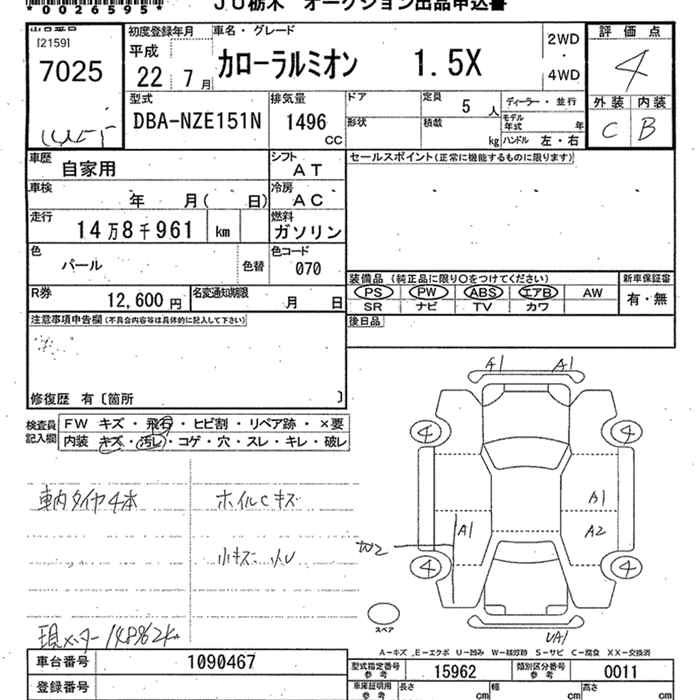 *0026595*
JU栃木 オークション出品申込書
出品番号
[2159]
7025
初度登録年月
平成
22 7月
車名・グレード
カローラルミオン 1.5X
2WD
・
4WD
評価点
4
外装 内装
C B
型式
DBA-NZE151N
排気量
1496
cc
ドア
形状
定員 5 人
積載 kg
ディーラー・並行
モデル年式 年
ハンドル 左・右
車歴
自家用
シフト
AT
車検
年 月( 日)
冷房
AC
走行
14万8千961 km
燃料
ガソリン
色
パール
色替
色コード
070
R券
12,600 円
名変通知期限
月 日
セールスポイント(正常に機能するものに限ります)
装備品 (純正品に限り○をつけてください)
PS PW ABS エアB AW
SR ナビ TV カワ
新車保証書
有・無
後日品
注意事項申告欄(不具合内容等は具体的に記入して下さい)
修復歴 有〔箇所 〕
検査員記入欄
FW キズ・飛石・ヒビ割・リペア跡・×要
内装 キズ・汚レ・コゲ・穴・スレ・キレ・破レ
車内タイヤ4本
ホイルCキズ
小キズ 小U
現メーター 148962km
A1 A1
4 4
A1
A1 A2
W2
4 4
スペア
UA1
A-キズ E-エクボ U-凹み W-補修跡 S-サビ C-腐食 XX-交換済
車台番号 1090467
登録番号
型式指定番号 参考 15962
類別区分番号 参考 0011
車庫証明用 参考
長さ cm
幅 cm
高さ cm